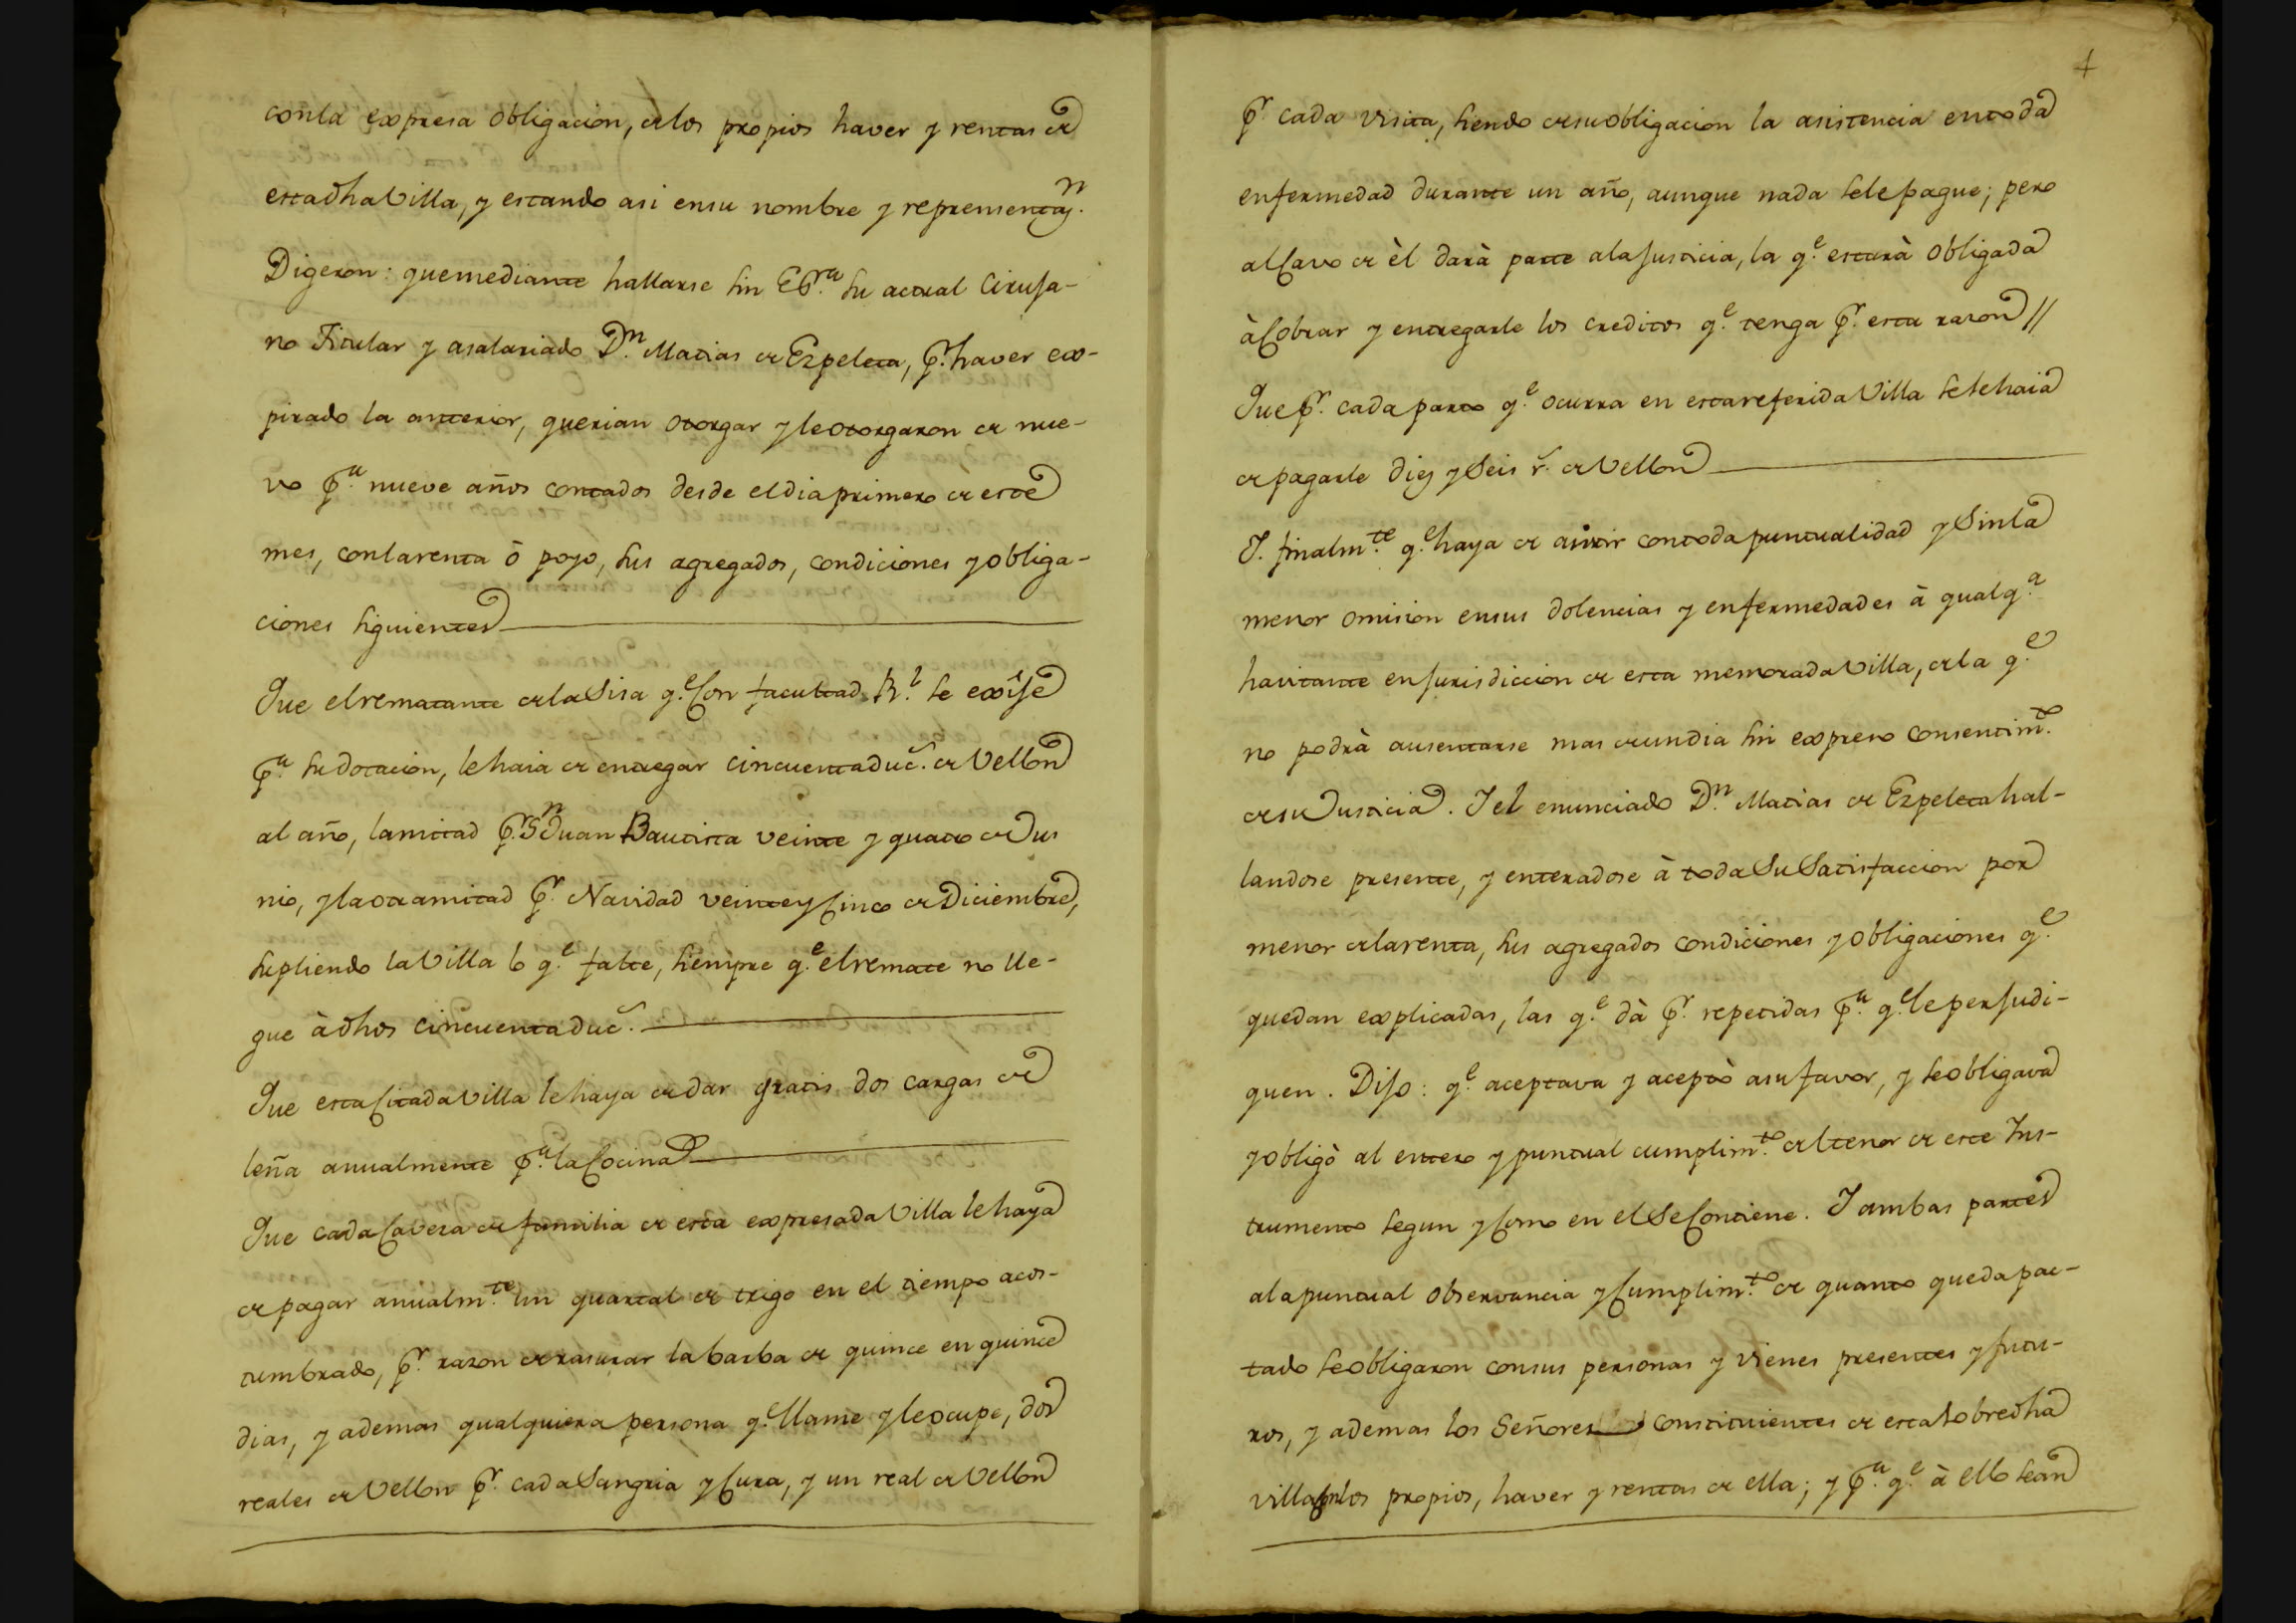 con la expresa obligacion, de los propios haver y rentas de
esta dha Villa, y estando asi en su nombre y representaz.n
Digeron: que mediante hallarse sin Esc.ra su actual Ciruja-
no Titular y asalariado D.n Matias de Ezpeleta, p.r haver ex-
pirado la anterior, querian otorgar y le otorgaron de nue-
vo p.a nueve años contados desde el dia primero de este
mes, con la renta ò poyo, sus agregados, condiciones y obliga-
ciones siguientes
Que el rematante de la Sisa q.e con facultad R.l se exije
p.a su dotacion, le haia de entregar cincuenta duc.s de Vellon
al año, la mitad p.r S.n Juan Bautista veinte y quatro de Ju-
nio, y la otra mitad p.r Navidad veinte y cinco de Diciembre,
supliendo la Villa lo q.e falte, siempre q.e el remate no lle-
gue à dhos cincuenta duc.s
Que esta citada Villa le haya de dar gratis dos cargas de
leña anualmente p.a la Cocina
Que cada Caveza de familia de esta expresada Villa le haya
de pagar anualm.te un quartal de trigo en el tiempo acos-
tumbrado, p.r razon de rasurar la barba de quince en quince
dias, y ademas qualquiera persona q.e llame y le ocupe, dos
reales de Vellon p.r cada Sangria y Cura, y un real de Vellon
p.r cada visita, siendo de su obligacion la asistencia en toda
enfermedad durante un año, aunque nada se le pague; pero
al Cavo de èl darà parte a la Justicia, la q.e estarà obligada
à Cobrar y entregarle los creditos q.e tenga p.r esta razon //
Que p.r cada parto q.e ocurra en esta referida Villa se le haia
de pagarle diez y Seis r.s de Vellon
Y. finalm.te q.e haya de asistir con toda puntualidad y Sin la
menor omision en sus dolencias y enfermedades à qualq.a
havitante en Jurisdiccion de esta memorada Villa, de la q.e
no podrà ausentarse mas de un dia sin expreso consentim.to
de su Justicia. Y el enunciado D.n Matias de Ezpeleta hal-
landose presente, y enteradose à toda Su Satisfaccion por
menor de la renta, sus agregados condiciones y obligaciones q.e
quedan explicadas, las q.e dà p.r repetidas p.a q.e le perjudi-
quen. Dijo: q.e aceptava y aceptò a su favor, y se obligava
y obligò al entero y puntual cumplim.to del tenor de este Ins-
trumento segun y Como en el Se Contiene. Y ambas partes
a la puntual observancia y Cumplim.to de quanto queda pac-
tado se obligaron con sus personas y vienes presentes y futu-
ros, y ademas los Señores constituientes de esta sobredha
villa con los propios, haver y rentas de ella; y p.a q.e à ello sean